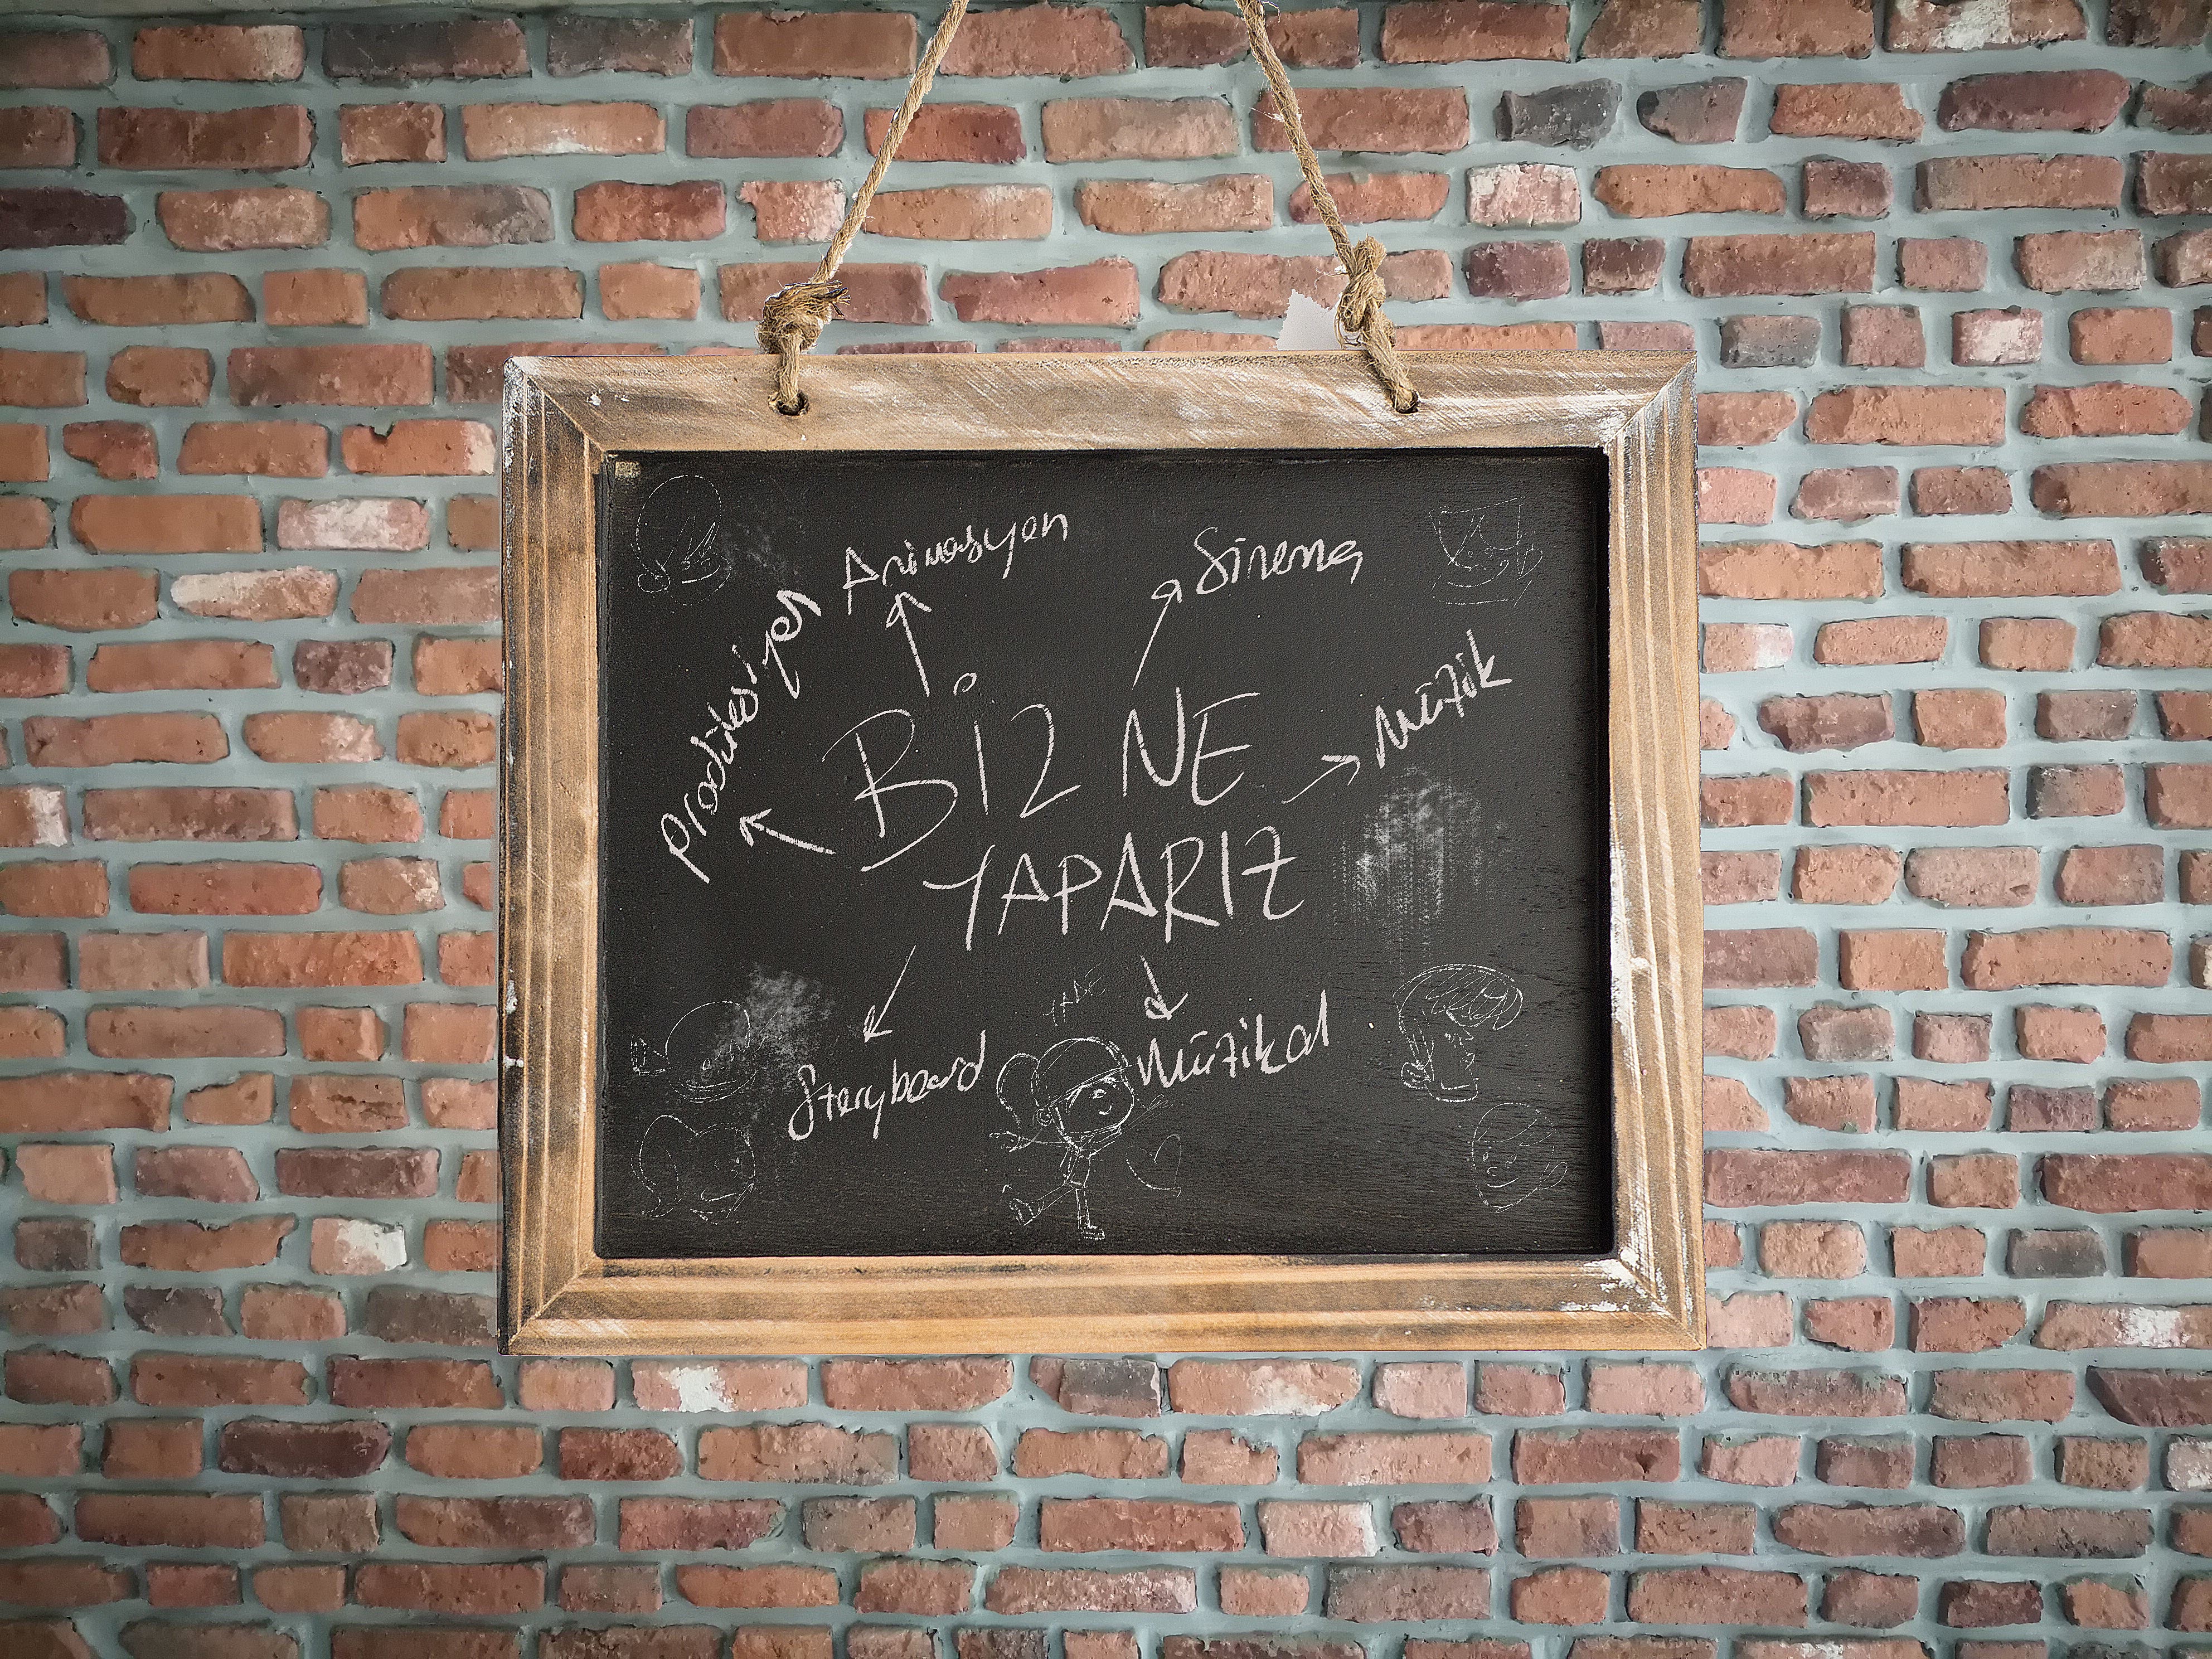 Animasyon
Sinema
Prodüksiyon
Müzik
BİZ NE
YAPARIZ
Storyboard
Müzikal